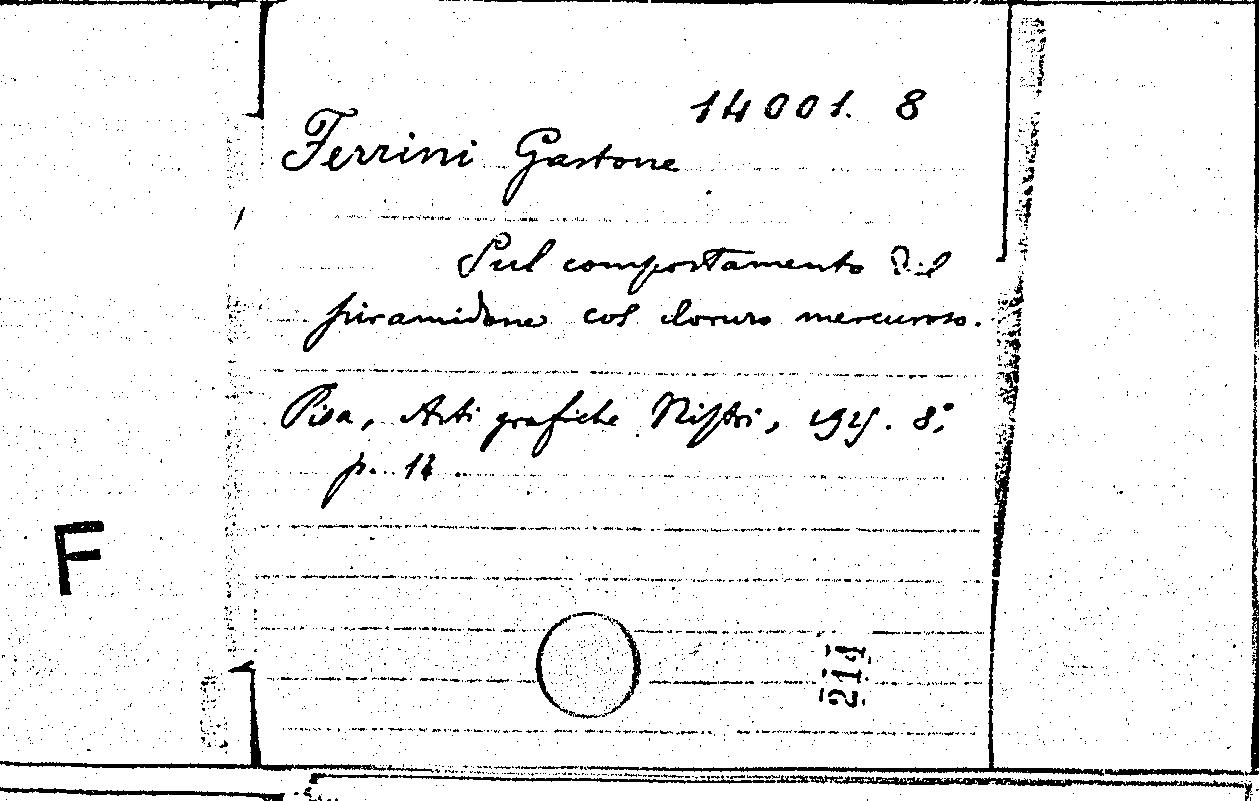 14001. 8
Ferrini Gastone
Sul comportamento del
piramidone col cloruro mercuroso.
Pisa, Arti grafiche Nistri, 1925. 8°,
p. 14
F
211